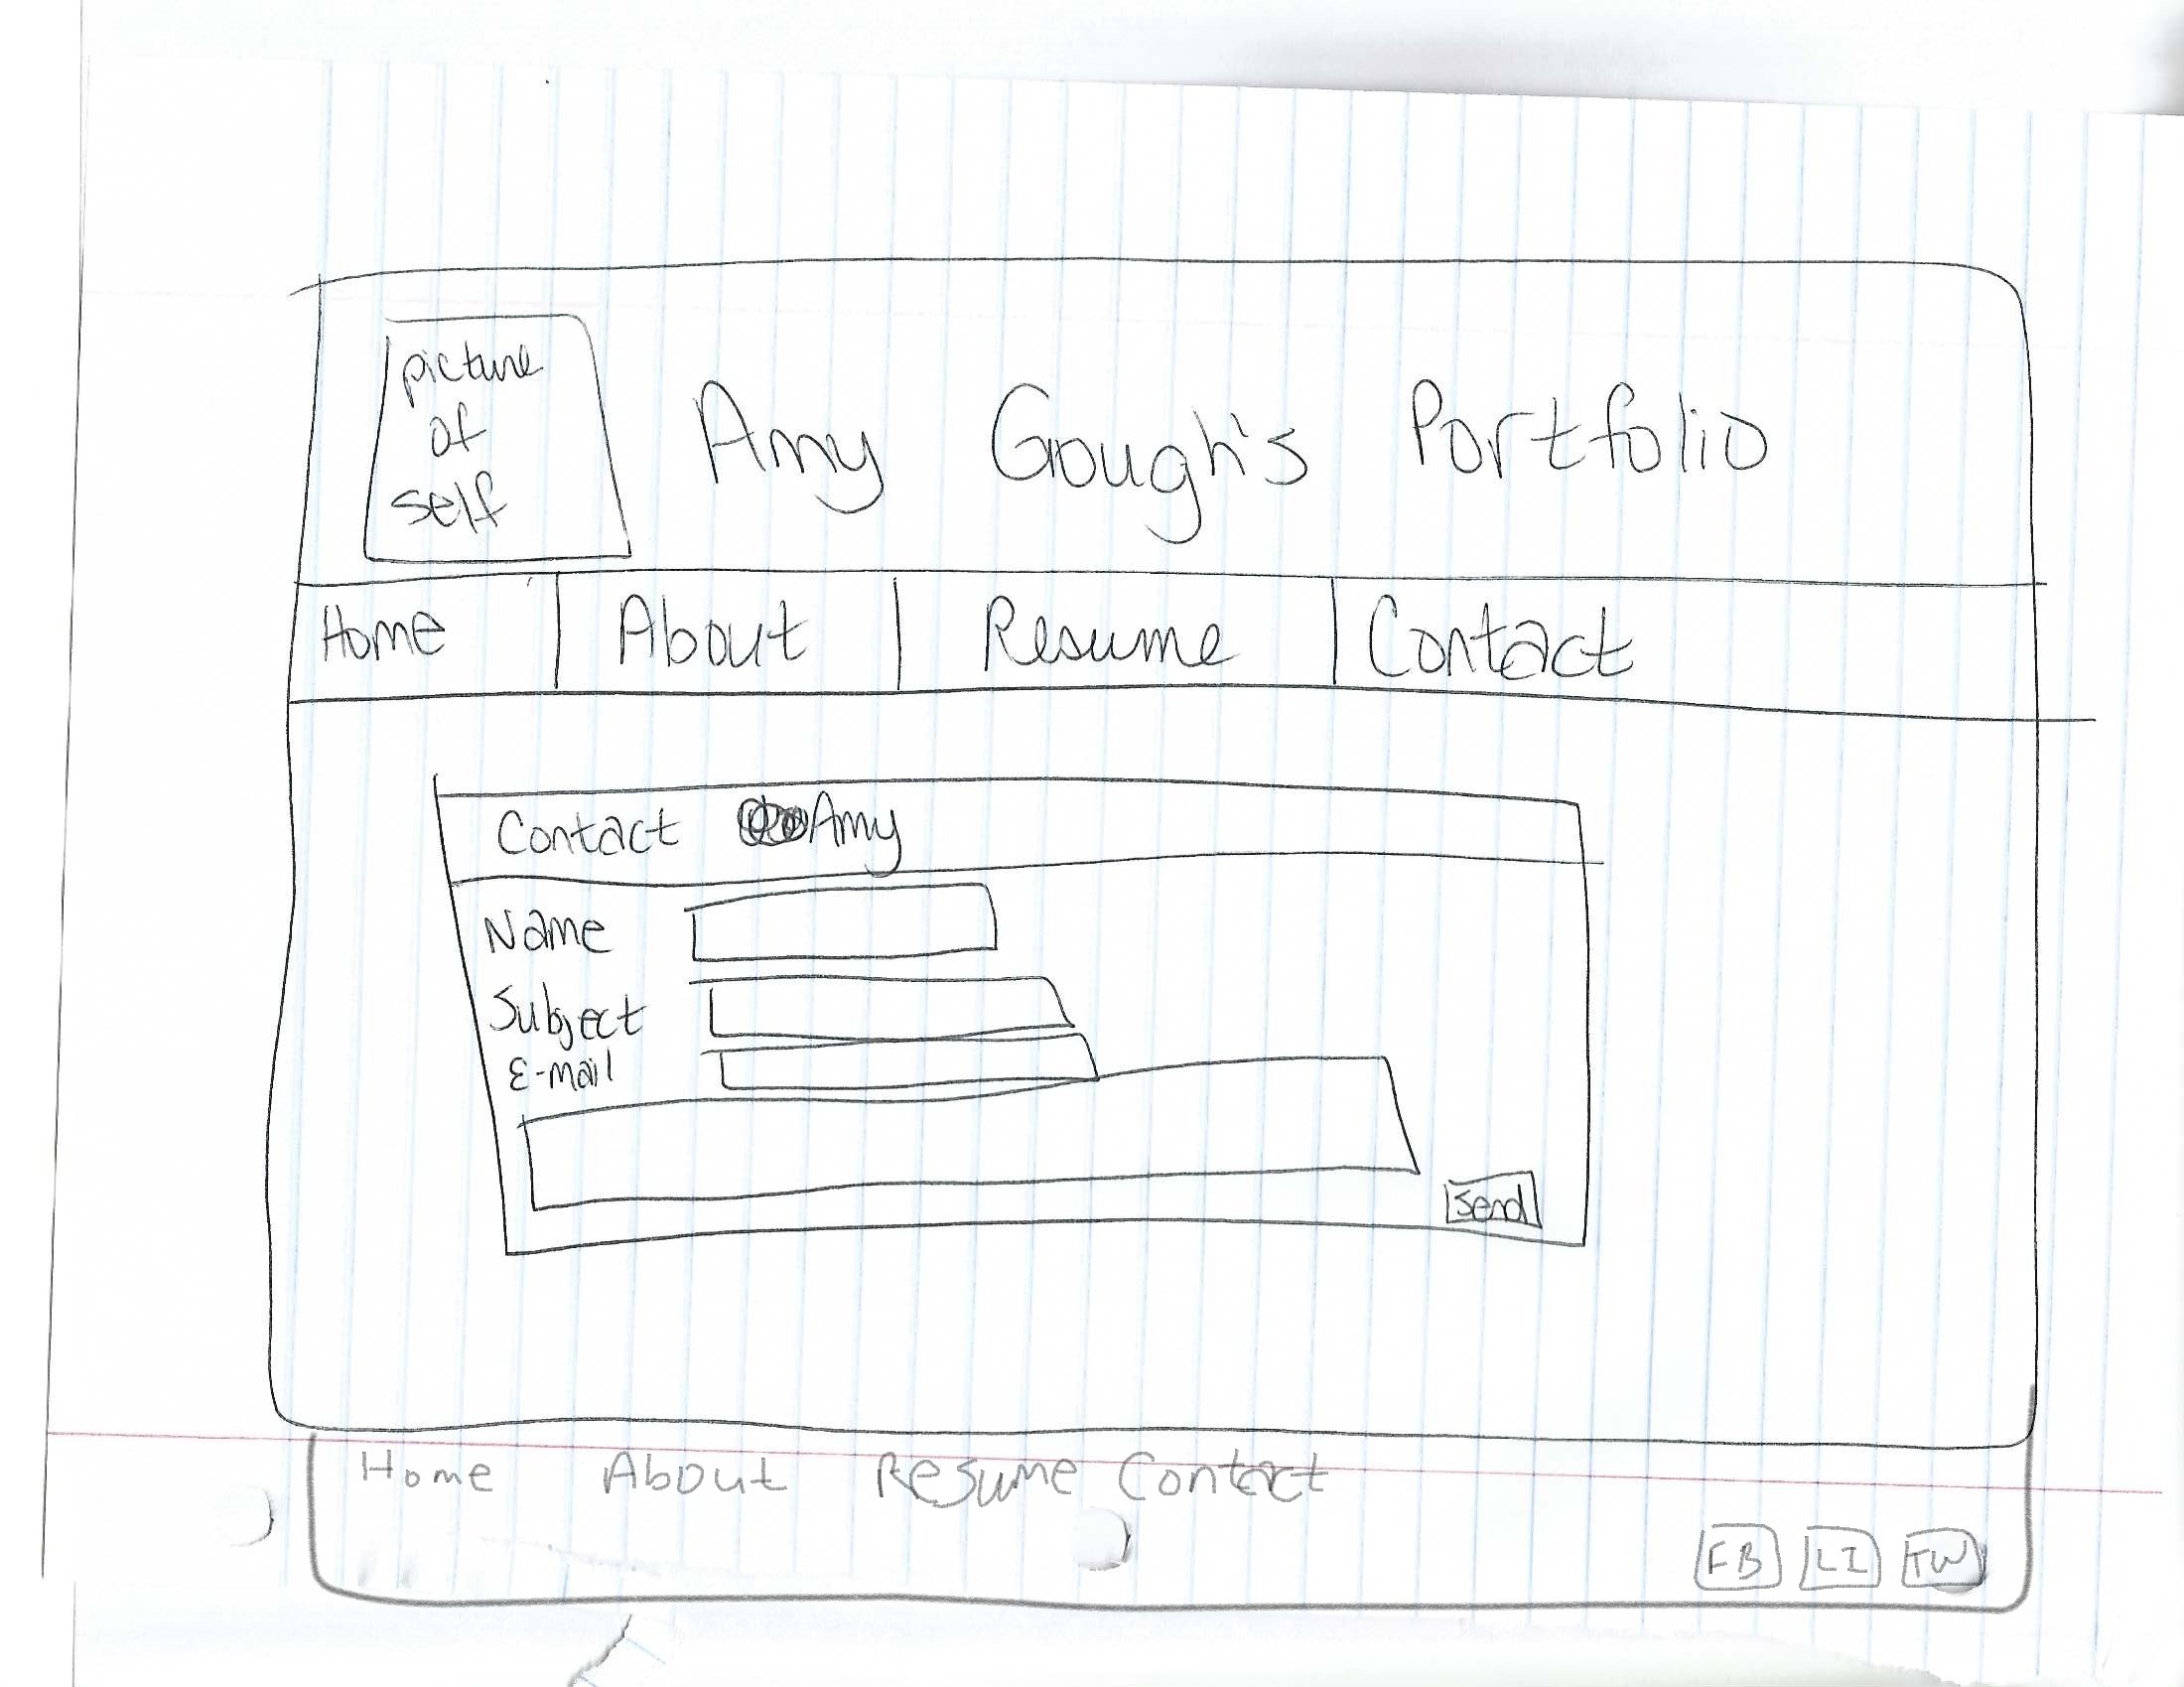 picture
of
self
Amy Gough's Portfolio
Home About Resume Contact
Contact Amy
Name
Subject
E-mail
Send
Home About Resume Contact
FB LI TW